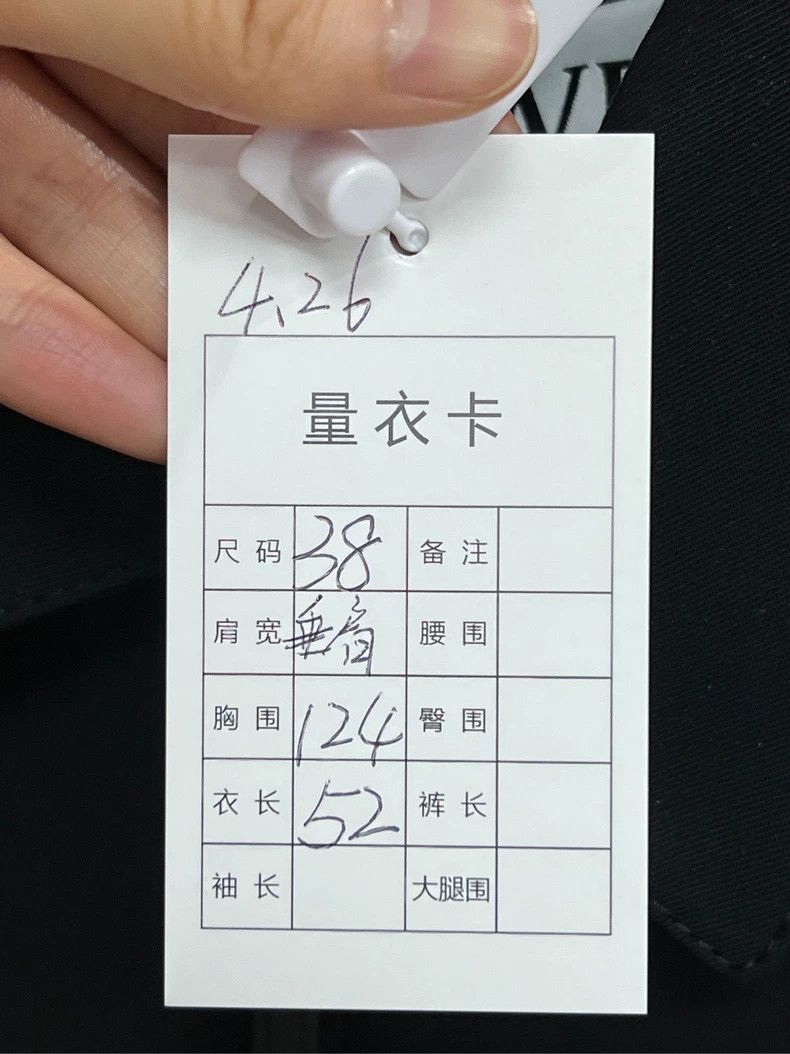 4.26
量衣卡
尺码 38 备注
肩宽 垂肩 腰围
胸围 124 臀围
衣长 52 裤长
袖长 大腿围